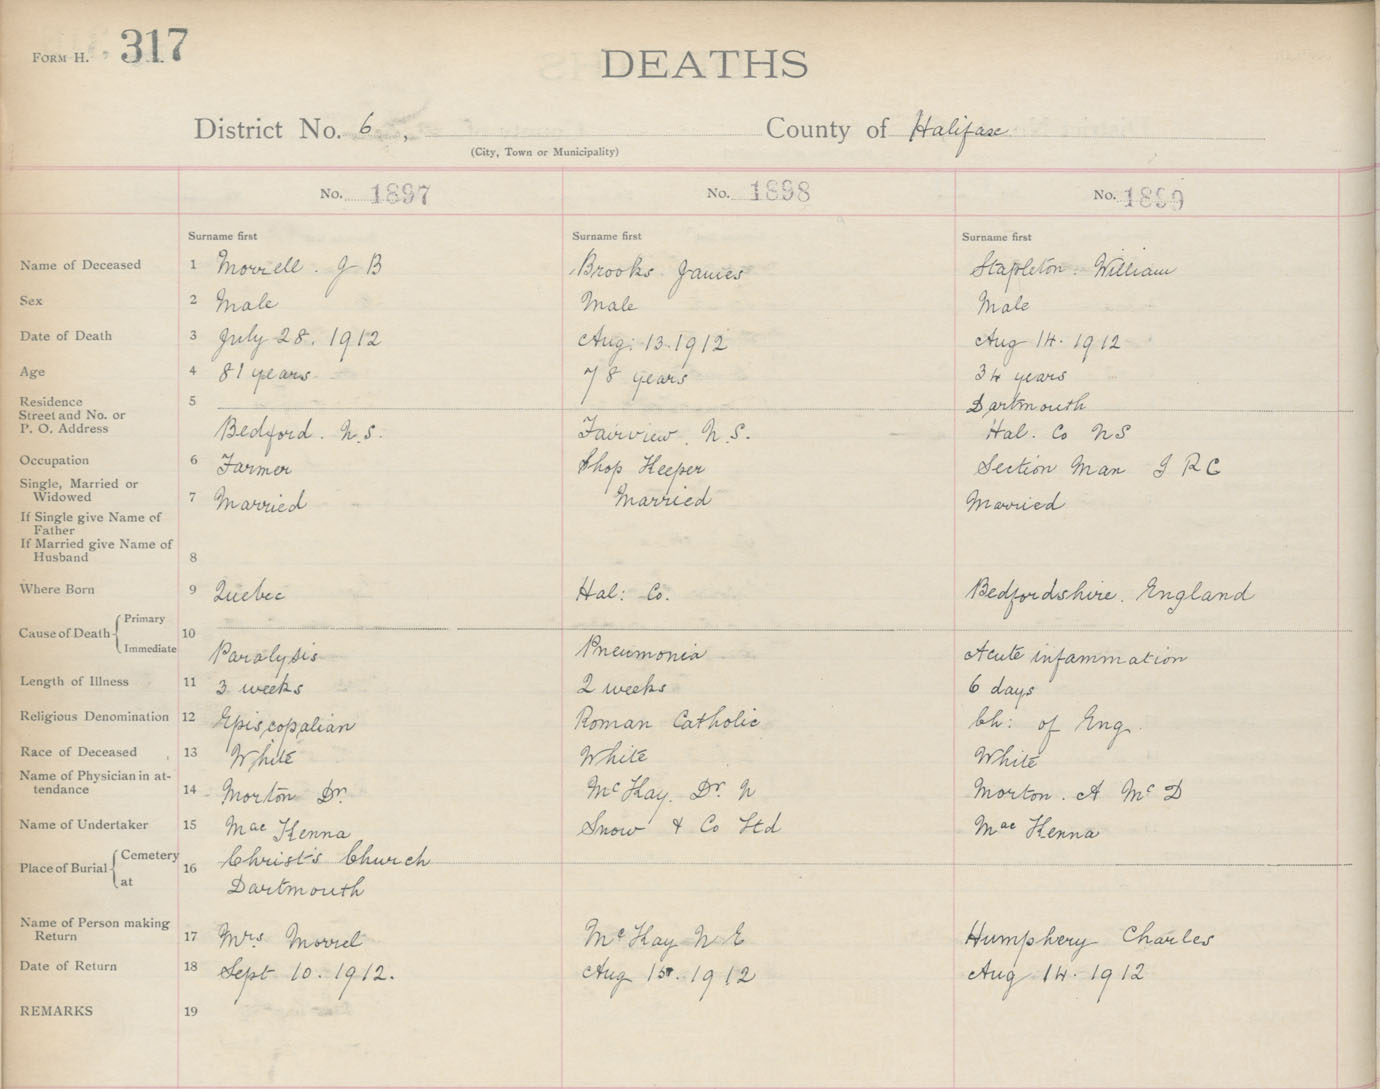 FORM H. 317
DEATHS
District No. 6 , County of Halifax
(City, Town or Municipality)
No. 1897 No. 1898 No. 1899
Surname first Surname first Surname first
Name of Deceased 1 Morrell. J B Brooks James Stapleton. William
Sex 2 Male Male Male
Date of Death 3 July 28. 1912 Aug. 13. 1912 Aug 14. 1912
Age 4 81 years 78 years 34 years
Residence 5 Dartmouth
Street and No. or
P. O. Address Bedford. N.S. Fairview. N.S. Hal. Co NS
Occupation 6 Farmer Shop Keeper Section Man I R C
Single, Married or
Widowed 7 Married Married Married
If Single give Name of
Father
If Married give Name of
Husband 8
Where Born 9 Quebec Hal: Co. Bedfordshire. England
Cause of Death Primary 10
Immediate Paralysis Pneumonia Acute infammation
Length of Illness 11 3 weeks 2 weeks 6 days
Religious Denomination 12 Episcopalian Roman Catholic Ch: of Eng.
Race of Deceased 13 White White White
Name of Physician in at-
tendance 14 Morton Dr. McKay. Dr. N Morton. A McD
Name of Undertaker 15 MacKenna Snow & Co Ltd MacKenna
Place of Burial Cemetery 16 Christ's Church
at Dartmouth
Name of Person making
Return 17 Mrs Morrel McKay N E Humphery Charles
Date of Return 18 Sept 10. 1912. Aug 15. 1912 Aug 14. 1912
REMARKS 19